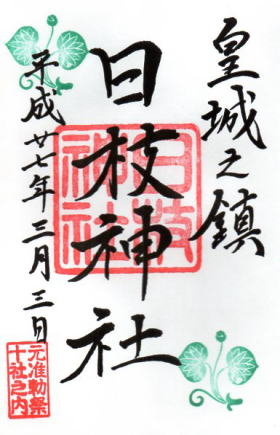 皇城之鎮
日枝神社
日枝神社
平成廿七年三月三日
元准勅祭
十社之内